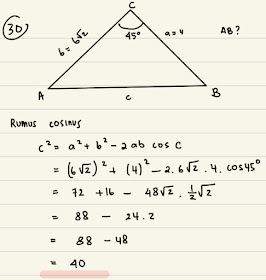 30)
C
b = 6√2
45°
a = 4
AB?
A
c
B
Rumus cosinus
c² = a² + b² - 2ab cos C
= (6√2)² + (4)² - 2.6√2 . 4. cos45°
= 72 + 16 - 48√2 . ½√2
= 88 - 24.2
= 88 - 48
= 40